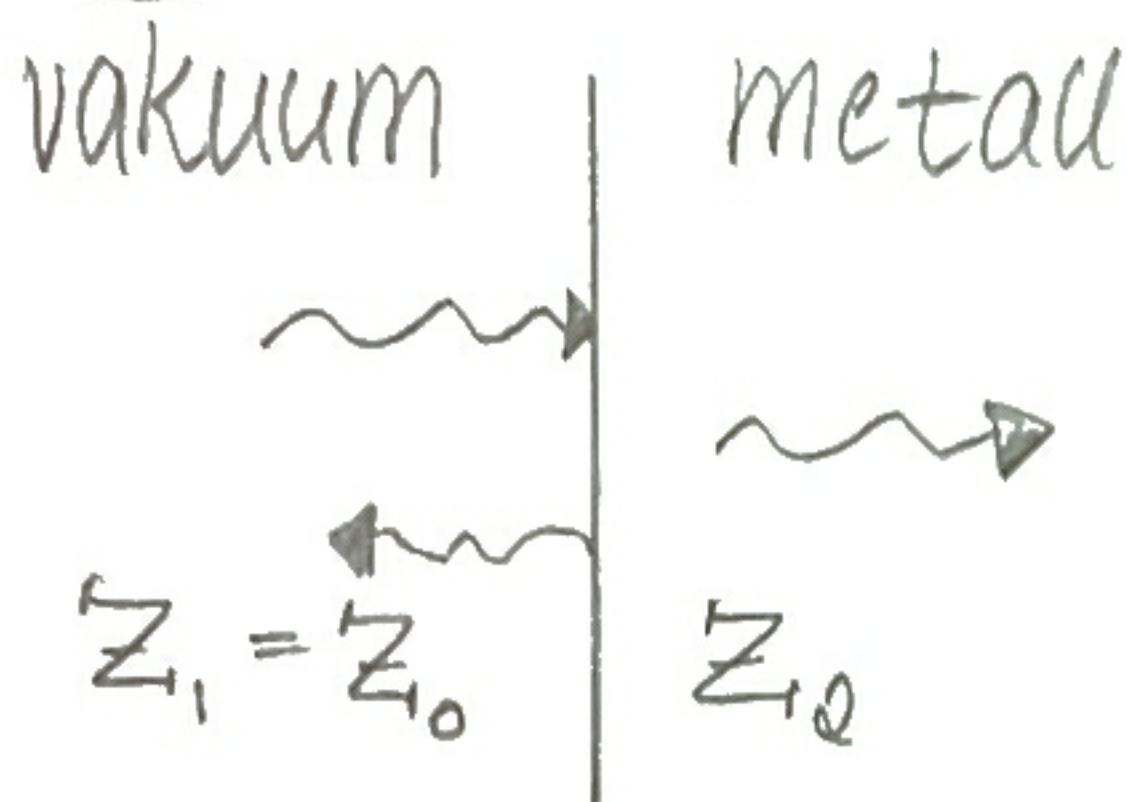 vakuum metall
Z₁ = Z₀ Z₂